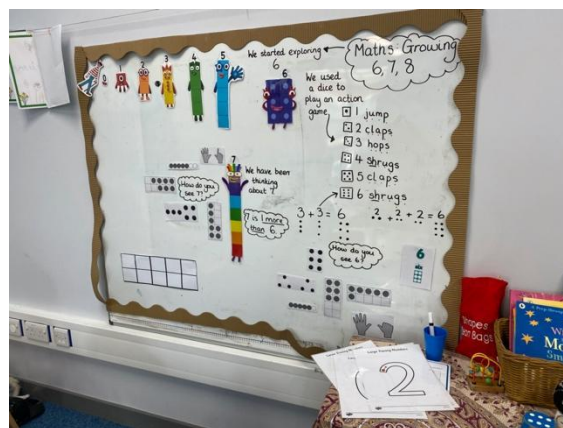 We started exploring
6
Maths: Growing
6, 7, 8
0
1
2
3
4
5
6
We used
a dice to
play an action
game
1 jump
2 claps
3 hops
4 shrugs
5 claps
6 shrugs
7
We have been
thinking
about 7
How do you
see 7?
7 is 1 more
than 6.
3 + 3 = 6
2 + 2 + 2 = 6
How do you
see 6?
6
2